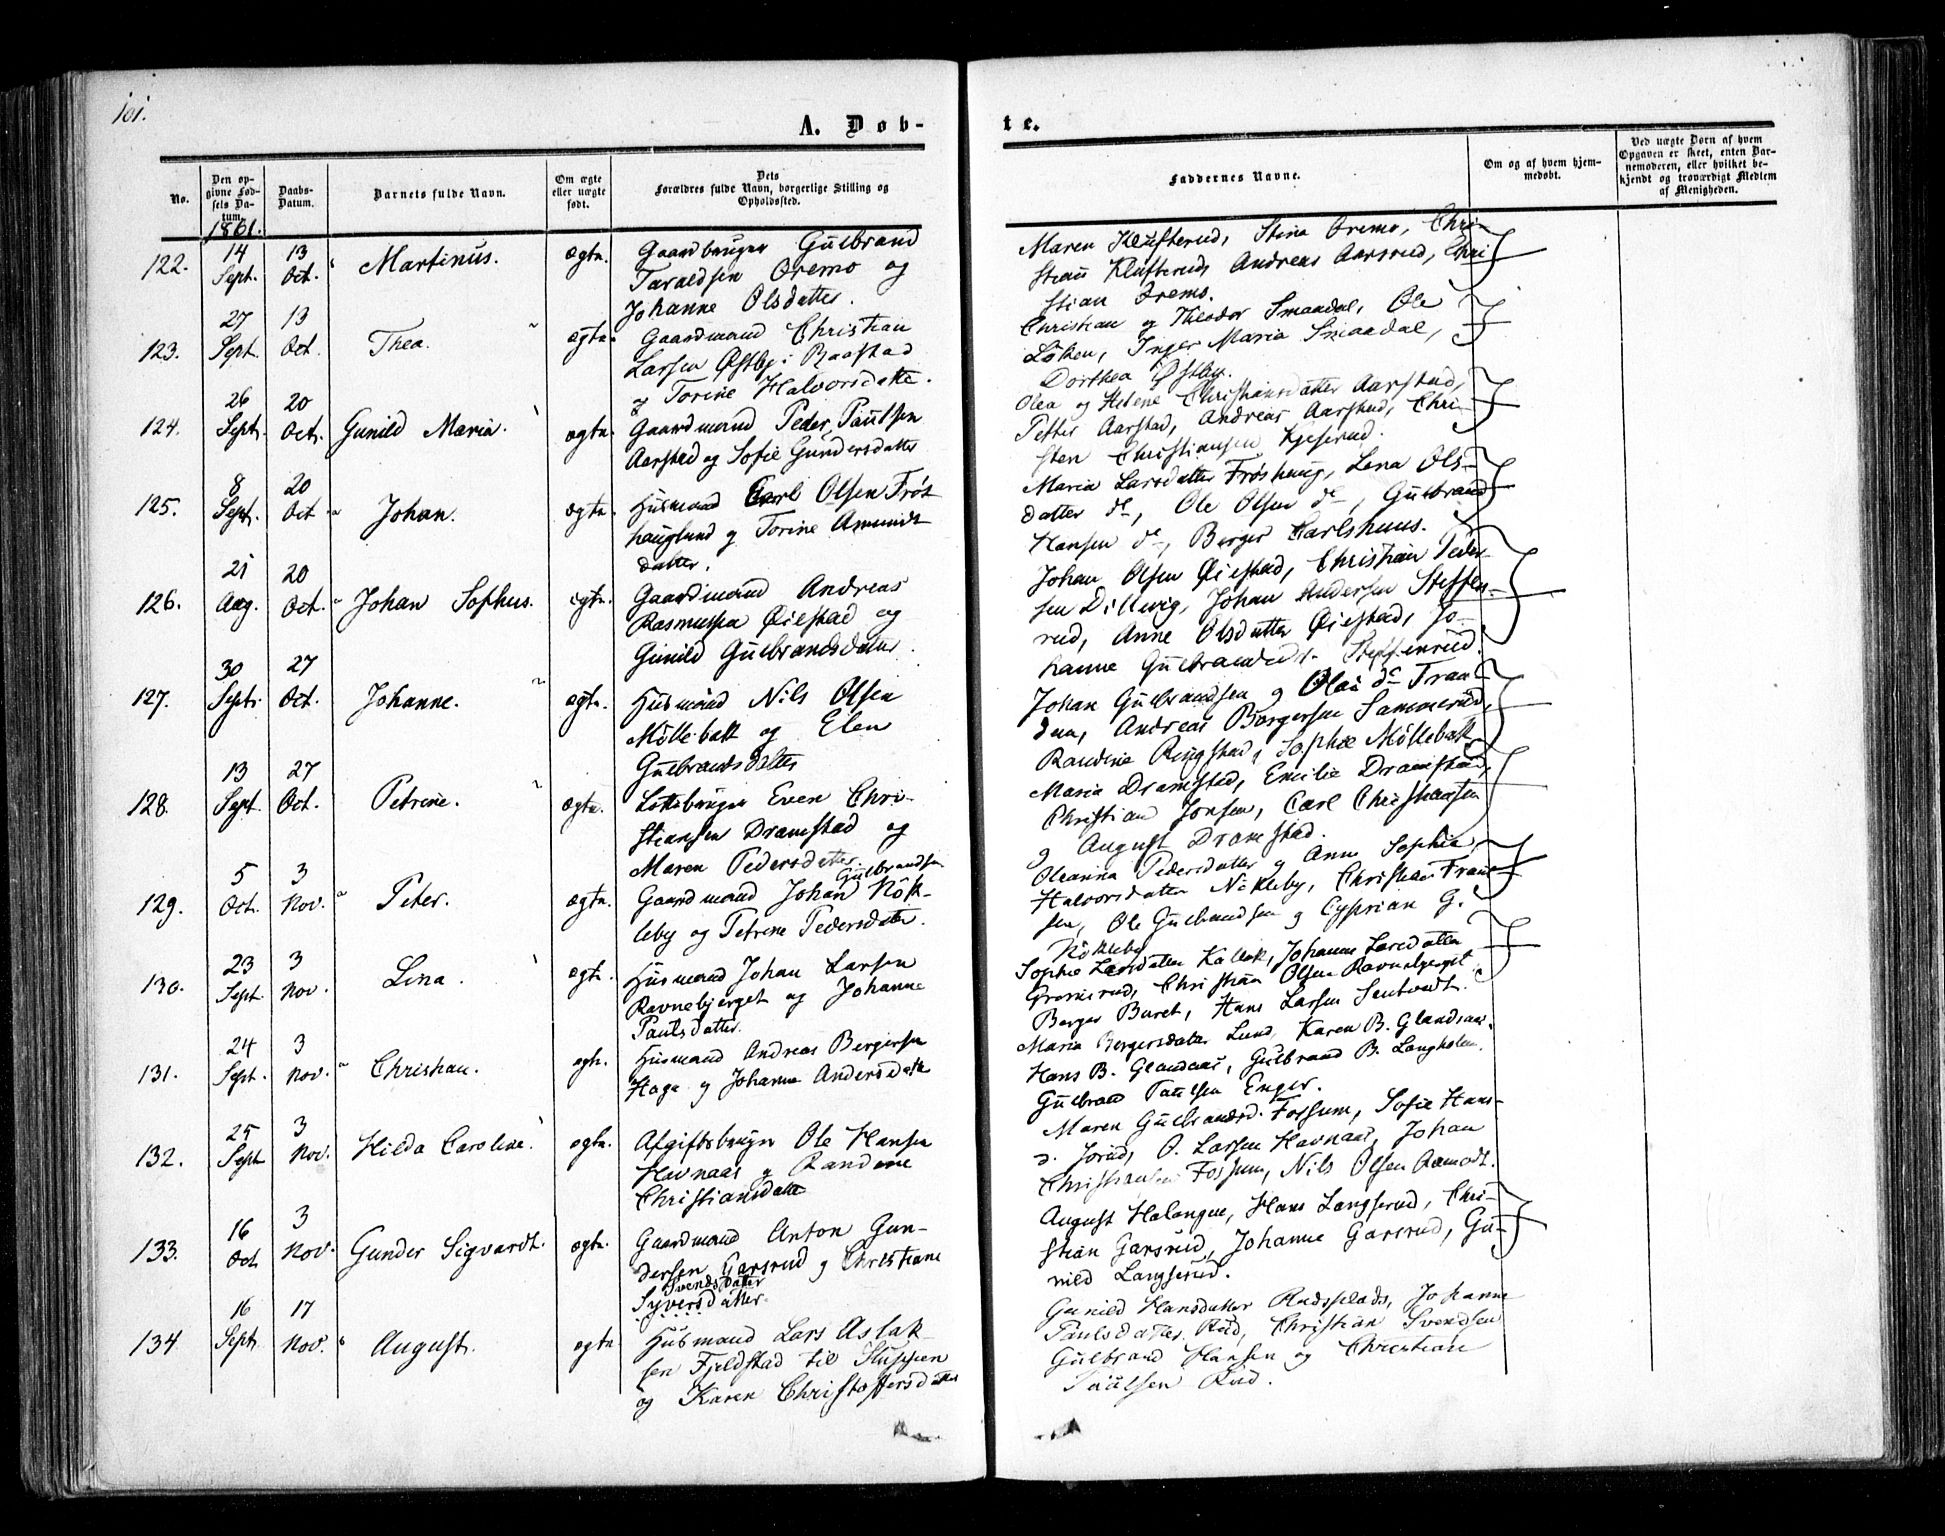 101.
A. Døb-
te.
No.
Den opgivne Fødsels Datum.
Daabs-Datum.
Barnets fulde Navn.
Om ægte eller uægte født.
Dets Forældres fulde Navn, borgerlige Stilling og Opholdssted.
Faddernes Navne.
Om og af hvem hjemmedøbt.
Ved uægte Børn af hvem Opgaven er skeet, enten Barnemoderen, eller hvilket bekjendt og troværdigt Medlem af Menigheden.
1861.
122. 14 Sept. 13 Oct. Martinus. ægte.
Gaardbruger Gulbrand
Taraldsen Oremo og
Johanne Olsdatter.
Maren Klufterud, Stina Oremo, Chri-
stian Klufterud, Andreas Aarsrud, Chri
stian Oremo.
123. 27 Sept. 13 Oct. Thea. ægte.
Gaardmand Christian
Larsen Østby i Raastad
og Torine Halvorsdatte.
Christian og Theodor Smaadal, Ole
Løken, Inger Maria Smaadal,
Dorthea Østby.
124. 26 Sept. 20 Oct. Gunild Maria. ægte.
Gaardmand Peder Paulsen
Aarstad og Sofie Gundersdatter
Olea og Helene Christiansdatter Aarstad,
Petter Aarstad, Andreas Aarstad, Chri-
sten Christiansen Kjeserud.
125. 8 Sept. 20 Oct Johan. ægte.
Husmand Carl Olsen Frøs
hauglund og Torine Amunds
datter.
Maria Larsdatter Frøshaug, Lena Ols-
datter do, Ole Olsen do, Gulbrand
Hansen do, Berger Carlshuus.
126. 21 Aug. 20 Oct. Johan Sophus. ægte.
Gaardmand Andreas
Rasmussen Øiestad og
Gunild Gulbrandsdatter.
Johan Olsen Øiestad, Christian Peder-
sen Dillevig, Johan Andersen Steffen-
rud, Anne Olsdatter Øiestad, Jo-
hanne Gulbrandsd. Steffenrud.
127. 30 Sept. 27 Oct. Johanne. ægte.
Husmand Nils Olsen
Møllebakk og Elen
Gulbrandsdatter
Johan Gulbrandsen og Olai do Tran-
den, Andreas Borgersen Sammerud,
Randine Ringstad, Sophie Møllebak
128. 13 Sept. 27 Oct. Petrine. ægte.
Lottebruger Even Chri-
stiansen Dramstad og
Maren Pedersdatter.
Maria Dramstad, Emilie Dramstad,
Christian Jonsen, Carl Christiansen
og August Dramstad.
129. 5 Oct. 3 Nov. Peter. ægte.
Gulbrandsen
Gaardmand Johan Nøk-
leby og Petrine Pedersdatter.
Oleanna Pedersdatter og Anne Sophia
Halvorsdatter Nökleby, Christian Frant-
sen, Ole Gulbrandsen og Cyprian G.
Nökleby
130. 23 Sept. 3 Nov. Lina. ægte.
Husmand Johan Larsen
Ravnebjerget og Johanne
Paulsdatter.
Sophie Larsdatter Kallak, Johanne Larsdatter
Grønsrud, Christian Olsen Ravnebjerget
Berger Buret, Hans Larsen Sentvedt.
131. 24 Sept. 3 Nov. Christian. ægte.
Husmand Andreas Bergersen
Haga og Johanne Andersdatte
Maria Bergersdatter Lund, Karen B. Glandaas.
Hans B. Glandaas, Gulbrand B. Langholen.
Gulbrand Paulsen Enger.
132. 25 Sept 3 Nov. Hilda Caroline. ægte.
Afgiftsbruger Ole Hansen
Havnaas og Randine
Christiansdatte
Maren Gulbrandsd. Fossum, Sofie Hans-
d. Jorud, O. Larsen Havnaas, Johan
Christiansen Fossum, Nils Olsen Aamodt.
133. 16 Oct 3 Nov. Gunder Sigvardt. ægte.
Gaardmand Anton Gun-
dersen Garsrud og Christiane
Svendsdatter
Syversdatter.
August Halangen, Hans Langserud, Chri-
stian Garsrud, Johanne Garsrud, Gu-
nild Langserud.
134 16 Sept. 17 Nov. August. ægte
Husmand Lars Aslak-
sen Fjeldstad til Sluppen
og Karen Christoffersdatter
Gunild Hansdatter Rudsplads, Johanne
Paulsdatter Rud, Christian Svendsen
Gulbrand Hansen og Christian
Paulsen Rud.